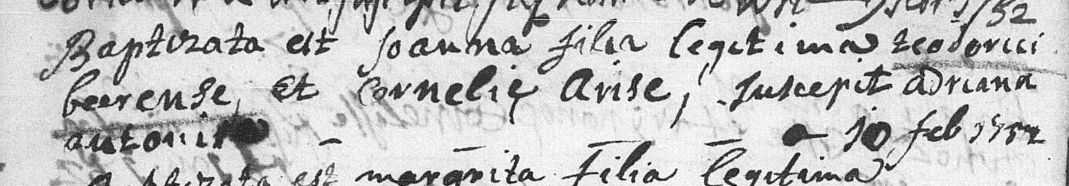 1732
Baptizata est Joanna filia legitima teodorici
beerense, Et Cornelię Arise, suscepit adriana
antonis — — — — 10 feb 1732
Baptizata est margrita Filia legitima